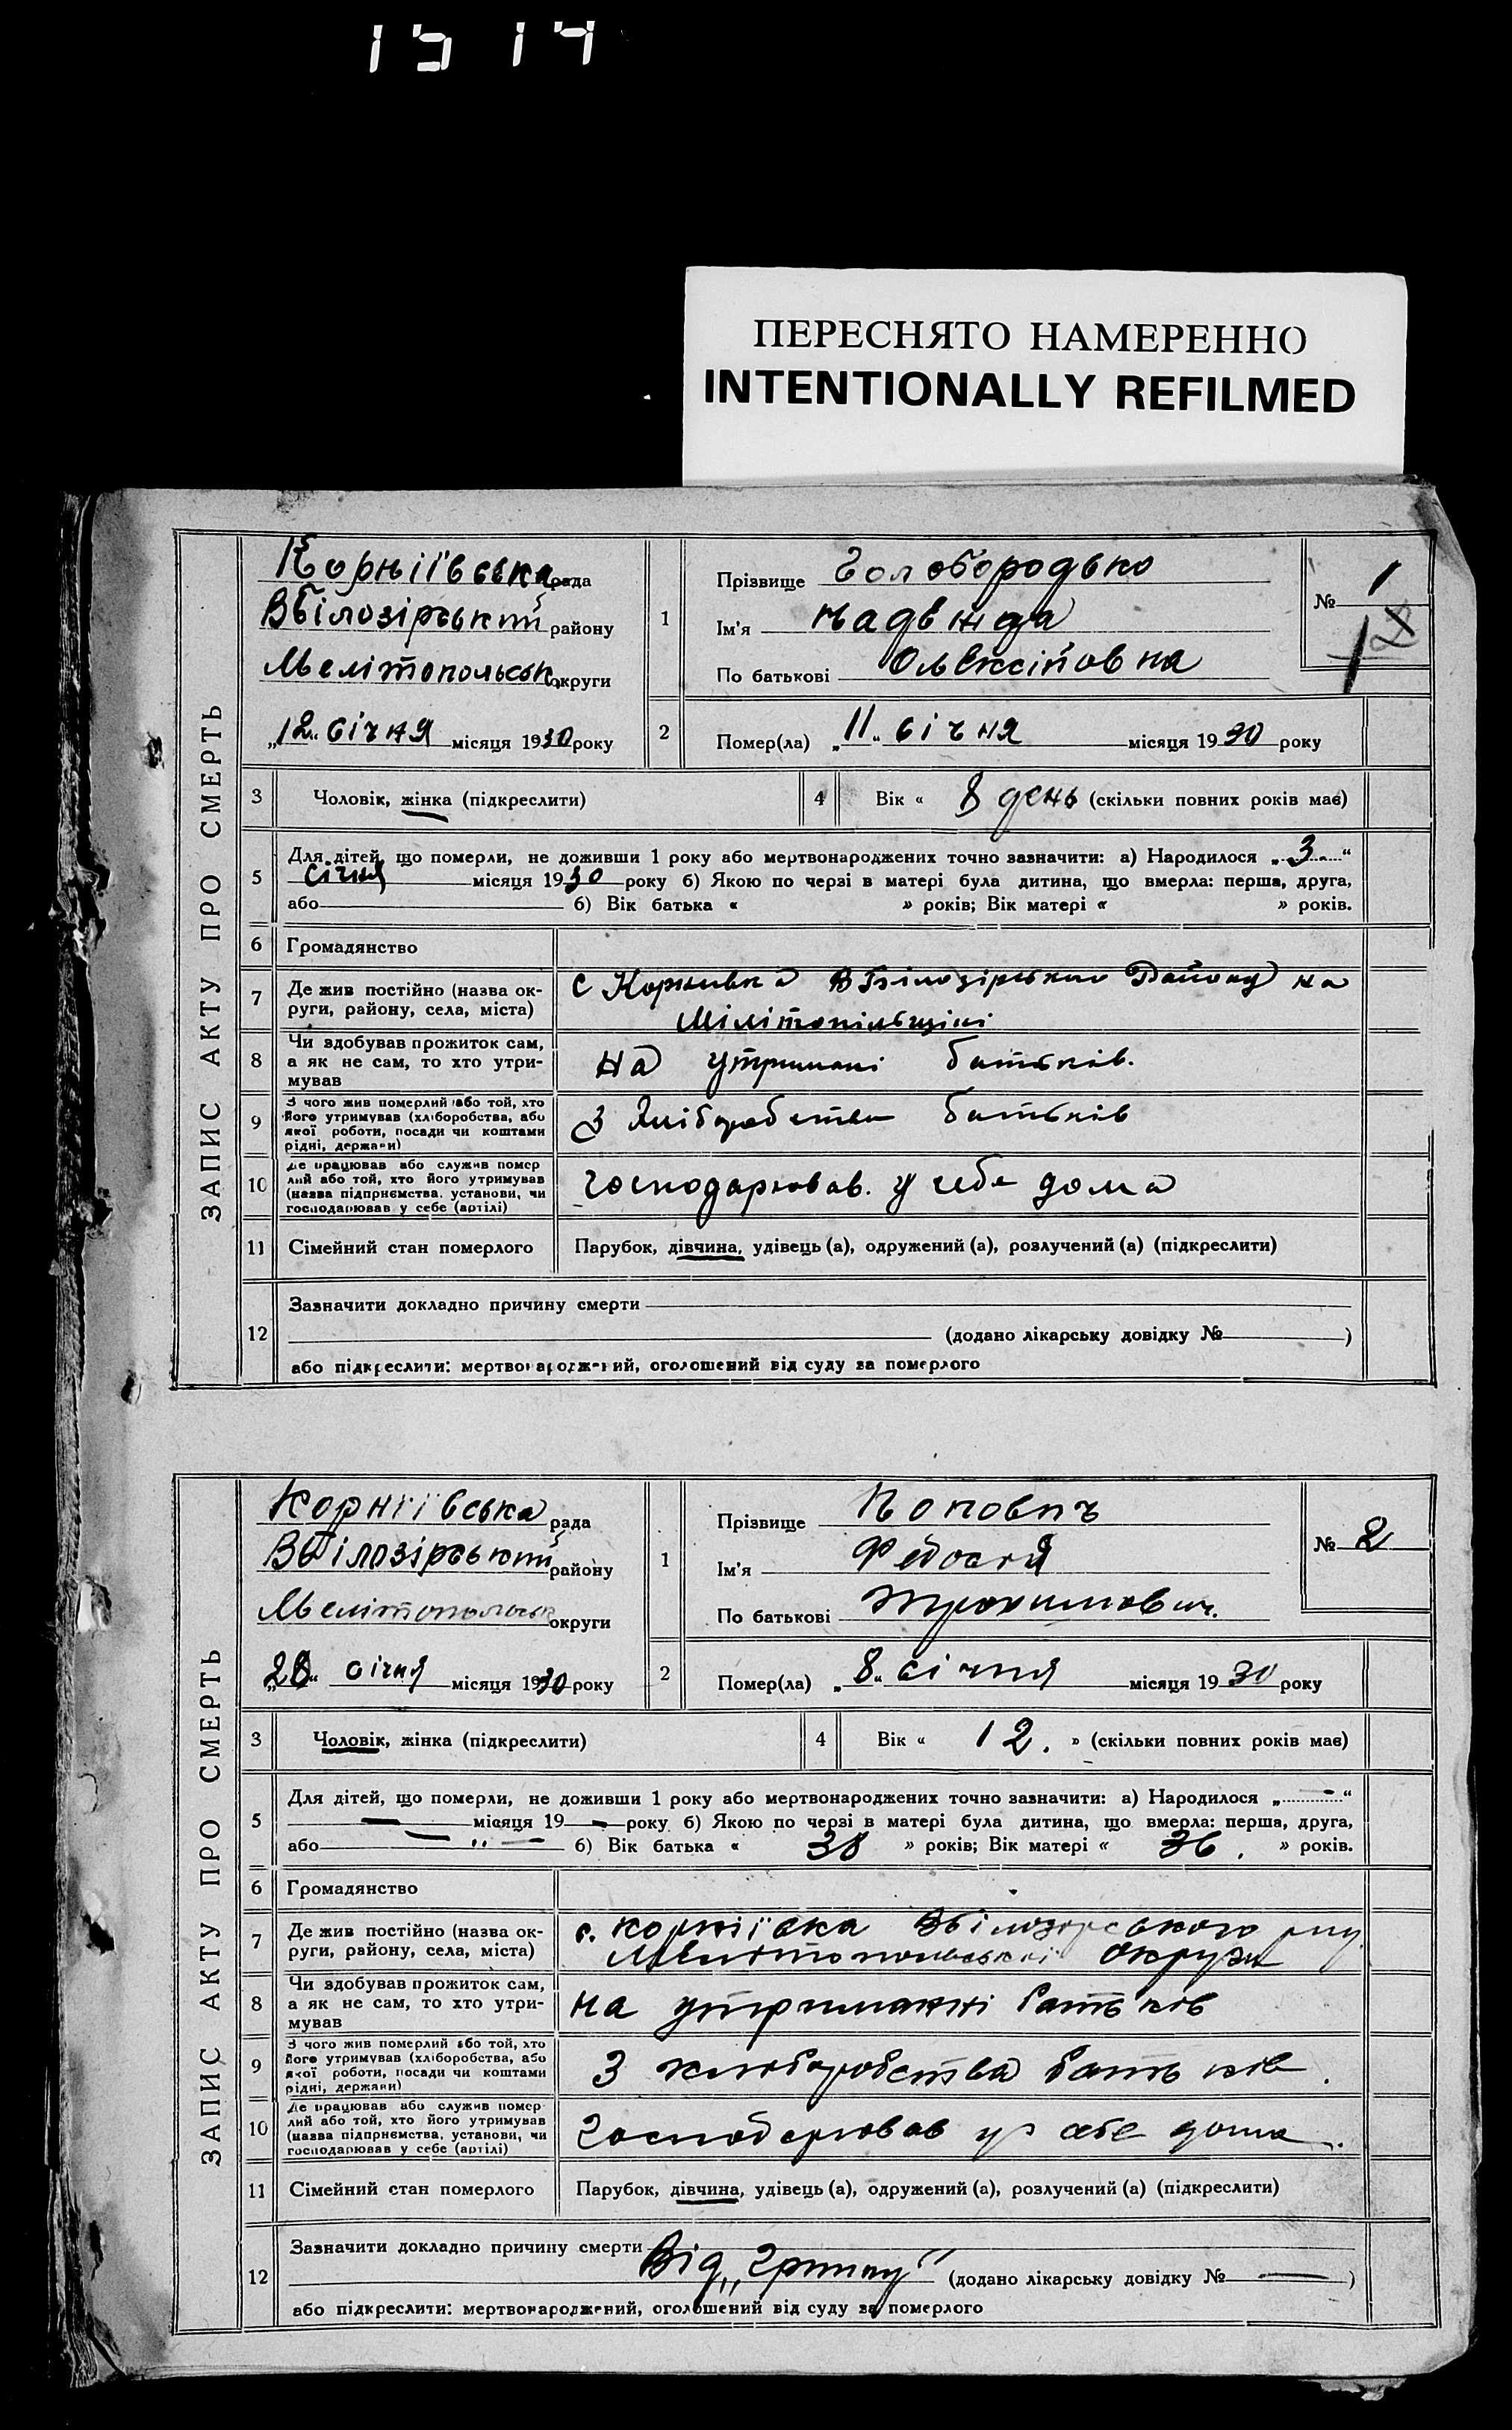 ПЕРЕСНЯТО НАМЕРЕННО
INTENTIONALLY REFILMED
ЗАПИС АКТУ ПРО СМЕРТЬ
Корніївська рада
ВБілозірський району
Мелітопольськ. округи
„12“ січня місяця 1930 року
1
Прізвище Голобородько
Ім'я Надежда
По батькові Олексіївовна
№ 1
2
Помер(ла) „11“ січня місяця 1930 року
3 Чоловік, жінка (підкреслити)
4 Вік « 8 день (скільки повних років має)
5 Для дітей, що померли, не доживши 1 року або мертвонароджених точно зазначити: а) Народилося „3“
січня місяця 1930 року б) Якою по черзі в матері була дитина, що вмерла: перша, друга,
або б) Вік батька « » років; Вік матері « » років.
6 Громадянство
7 Де жив постійно (назва округи, району, села, міста)
с Корніивка ВБілозірського Району на
Мілітопільщіні
8 Чи здобував прожиток сам,
а як не сам, то хто утри-
мував
на утримані батьків.
9 З чого жив померлий або той, хто
його утримував (хліборобства, або
якої роботи, посади чи коштами
рідні, держави)
З Хліборобства батьків
10 Де працював або служив помер
лий або той, хто його утримував
(назва підприємства, установи, чи
господарював у себе (артілі)
господарював. у себе дома
11 Сімейний стан померлого Парубок, дівчина, удівець (а), одружений (а), розлучений (а) (підкреслити)
12 Зазначити докладно причину смерти
(додано лікарську довідку № )
або підкреслити: мертвонароджений, оголошений від суду за померлого
ЗАПИС АКТУ ПРО СМЕРТЬ
Корніївська рада
ВБілозірський району
Мелітопольськ округи
„28“ січня місяця 1930 року
1
Прізвище Попович
Ім'я Федосій
По батькові Трохимович.
№ 2
2
Помер(ла) „8“ січня місяця 1930 року
3 Чоловік, жінка (підкреслити)
4 Вік « 12. » (скільки повних років має)
5 Для дітей, що померли, не доживши 1 року або мертвонароджених точно зазначити: а) Народилося „—“
— місяця 19 — року б) Якою по черзі в матері була дитина, що вмерла: перша, друга,
або — „ — б) Вік батька « 38 » років; Вік матері « 36. » років.
6 Громадянство
7 Де жив постійно (назва округи, району, села, міста)
с. Корніївка Вбілозорського р-ну
Мелітопольської округи
8 Чи здобував прожиток сам,
а як не сам, то хто утри-
мував
на утриманні батьків
9 З чого жив померлий або той, хто
його утримував (хліборобства, або
якої роботи, посади чи коштами
рідні, держави)
З хліборобства батьків.
10 Де працював або служив помер
лий або той, хто його утримував
(назва підприємства, установи, чи
господарював у себе (артілі)
Господарював у себе дома.
11 Сімейний стан померлого Парубок, дівчина, удівець (а), одружений (а), розлучений (а) (підкреслити)
12 Зазначити докладно причину смерти Від „грипу“
(додано лікарську довідку № — )
або підкреслити: мертвонароджений, оголошений від суду за померлого